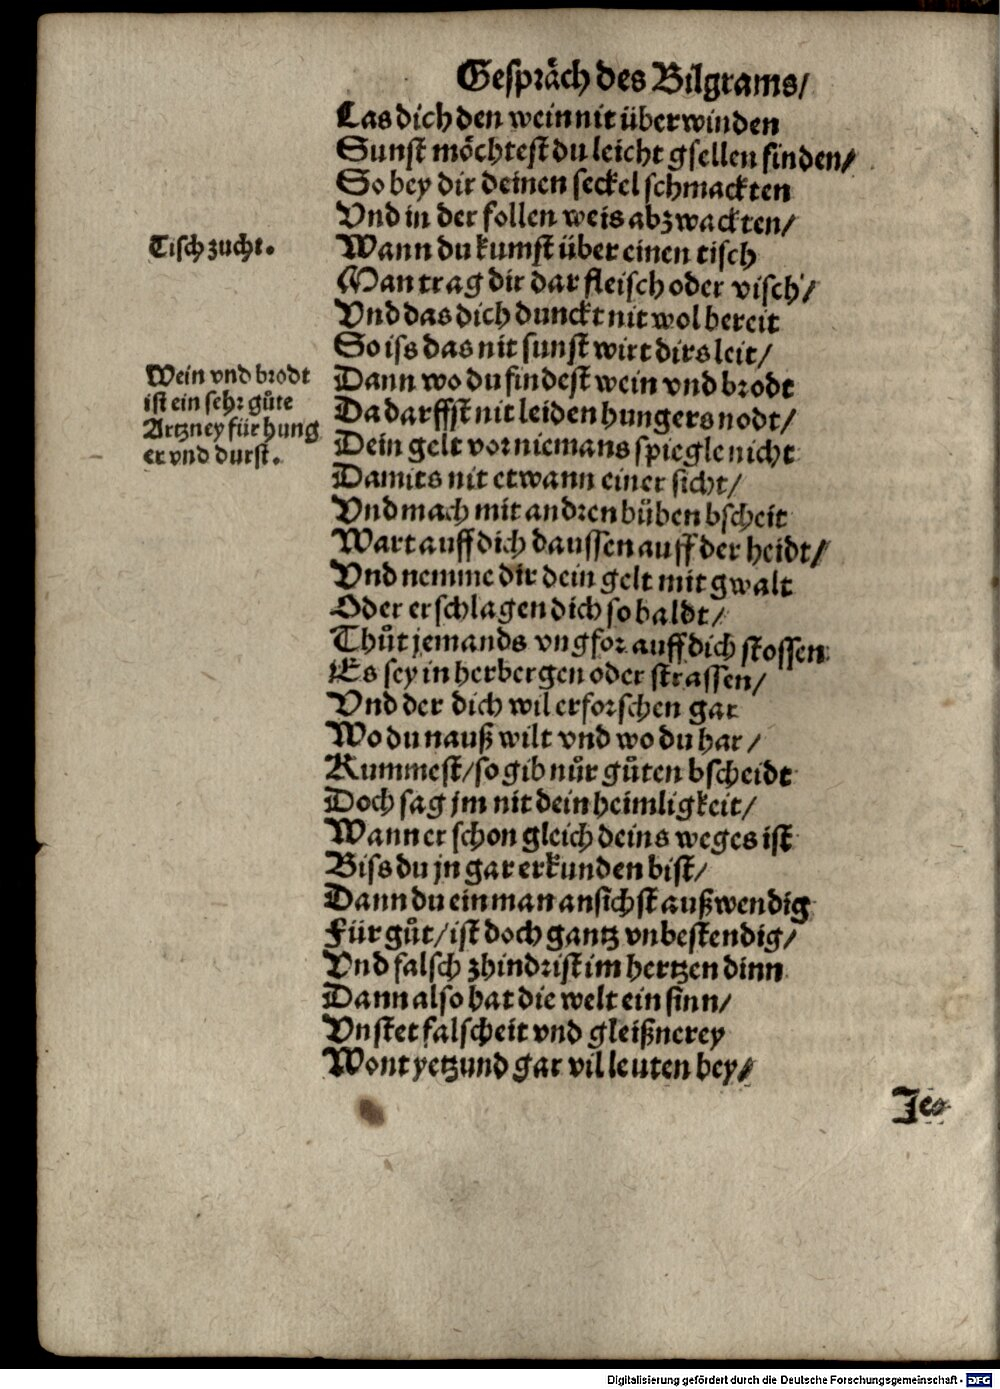 Gespräch des Bilgrams/
Las dich den wein nit überwinden
Sunst möchtest du leicht gsellen finden/
So bey dir deinen seckel schmackten
Vnd in der follen weis abzwackten/
Tisch zucht.
Wann du kumst über einen tisch
Man trag dir dar fleisch oder visch/
Vnd das dich dunckt nit wol bereit
So iss das nit sunst wirt dirs leit/
Wein vnd brodt
ist ein sehr gůte
Artzney für hung
er vnd durst.
Dann wo du findest wein vnd brodt
Da darffst nit leiden hungers nodt/
Dein gelt vor niemans spiegle nicht
Damits nit etwann einer sicht/
Vnd mach mit andren bůben bscheit
Wart auff dich daussen auff der heidt/
Vnd nemme dir dein gelt mit gwalt
Oder erschlagen dich so baldt/
Thůt jemands vngfor auff dich stossen
Es sey in herbergen oder strassen/
Vnd der dich wil erforschen gar
Wo du nauß wilt vnd wo du har/
Kummest/so gib nůr gůten bscheidt
Doch sag jm nit dein heimligkeit/
Wann er schon gleich deins weges ist
Biss du jn gar erkunden bist/
Dann du ein man ansichst außwendig
Für gůt/ist doch gantz vnbestendig/
Vnd falsch zhindrist im hertzen dinn
Dann also hat die welt ein sinn/
Vnstet falscheit vnd gleißnerey
Wont yetzund gar vil leuten bey/
Je⸗
Digitalisierung gefördert durch die Deutsche Forschungsgemeinschaft - DFG